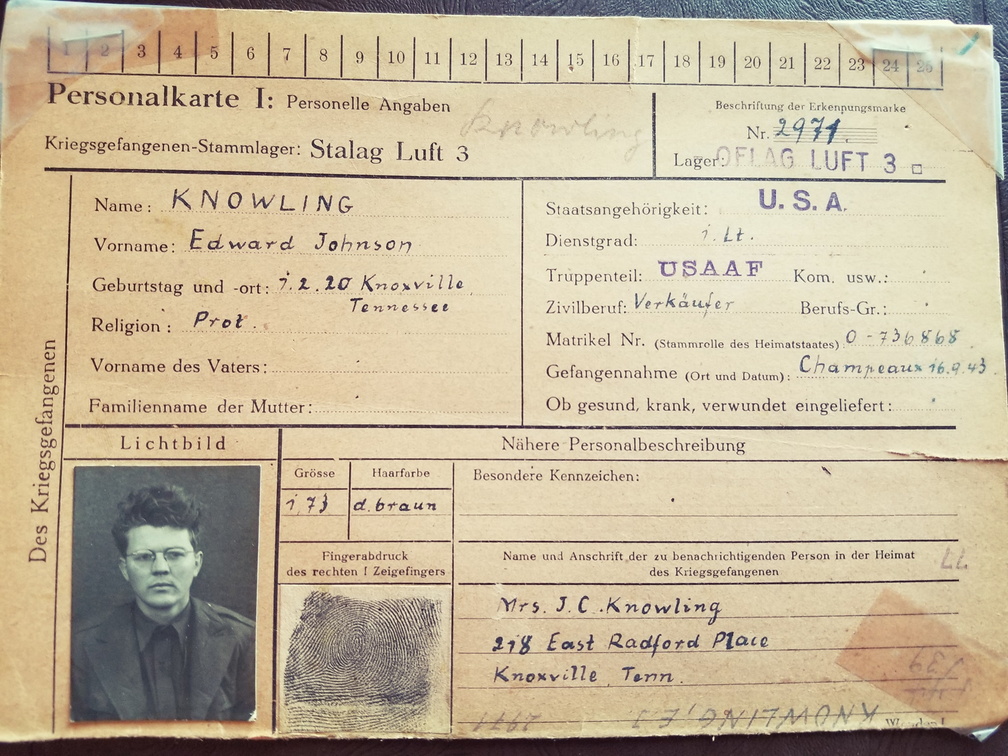 1 2 3 4 5 6 7 8 9 10 11 12 13 14 15 16 17 18 19 20 21 22 23 24 25
Personalkarte I: Personelle Angaben
Knowling
Kriegsgefangenen-Stammlager: Stalag Luft 3
Beschriftung der Erkennungsmarke
Nr. 2971.
Lager: OFLAG LUFT 3
Des Kriegsgefangenen
Name: KNOWLING
Vorname: Edward Johnson
Geburtstag und -ort: 1.2.20 Knoxville
Tennessee
Religion: Prot.
Vorname des Vaters:
Familienname der Mutter:
Staatsangehörigkeit: U.S.A.
Dienstgrad: 1. Lt.
Truppenteil: USAAF Kom. usw.:
Zivilberuf: Verkäufer Berufs-Gr.:
Matrikel Nr. (Stammrolle des Heimatstaates) 0-736868
Gefangennahme (Ort und Datum): Champeaux 16.9.43.
Ob gesund, krank, verwundet eingeliefert:
Lichtbild
Nähere Personalbeschreibung
Grösse
Haarfarbe
1,73
d. braun
Besondere Kennzeichen:
Fingerabdruck
des rechten I Zeigefingers
Name und Anschrift der zu benachrichtigenden Person in der Heimat
des Kriegsgefangenen
Mrs. J.C. Knowling
218 East Radford Place
Knoxville Tenn.
KNOWLING, E J 2971